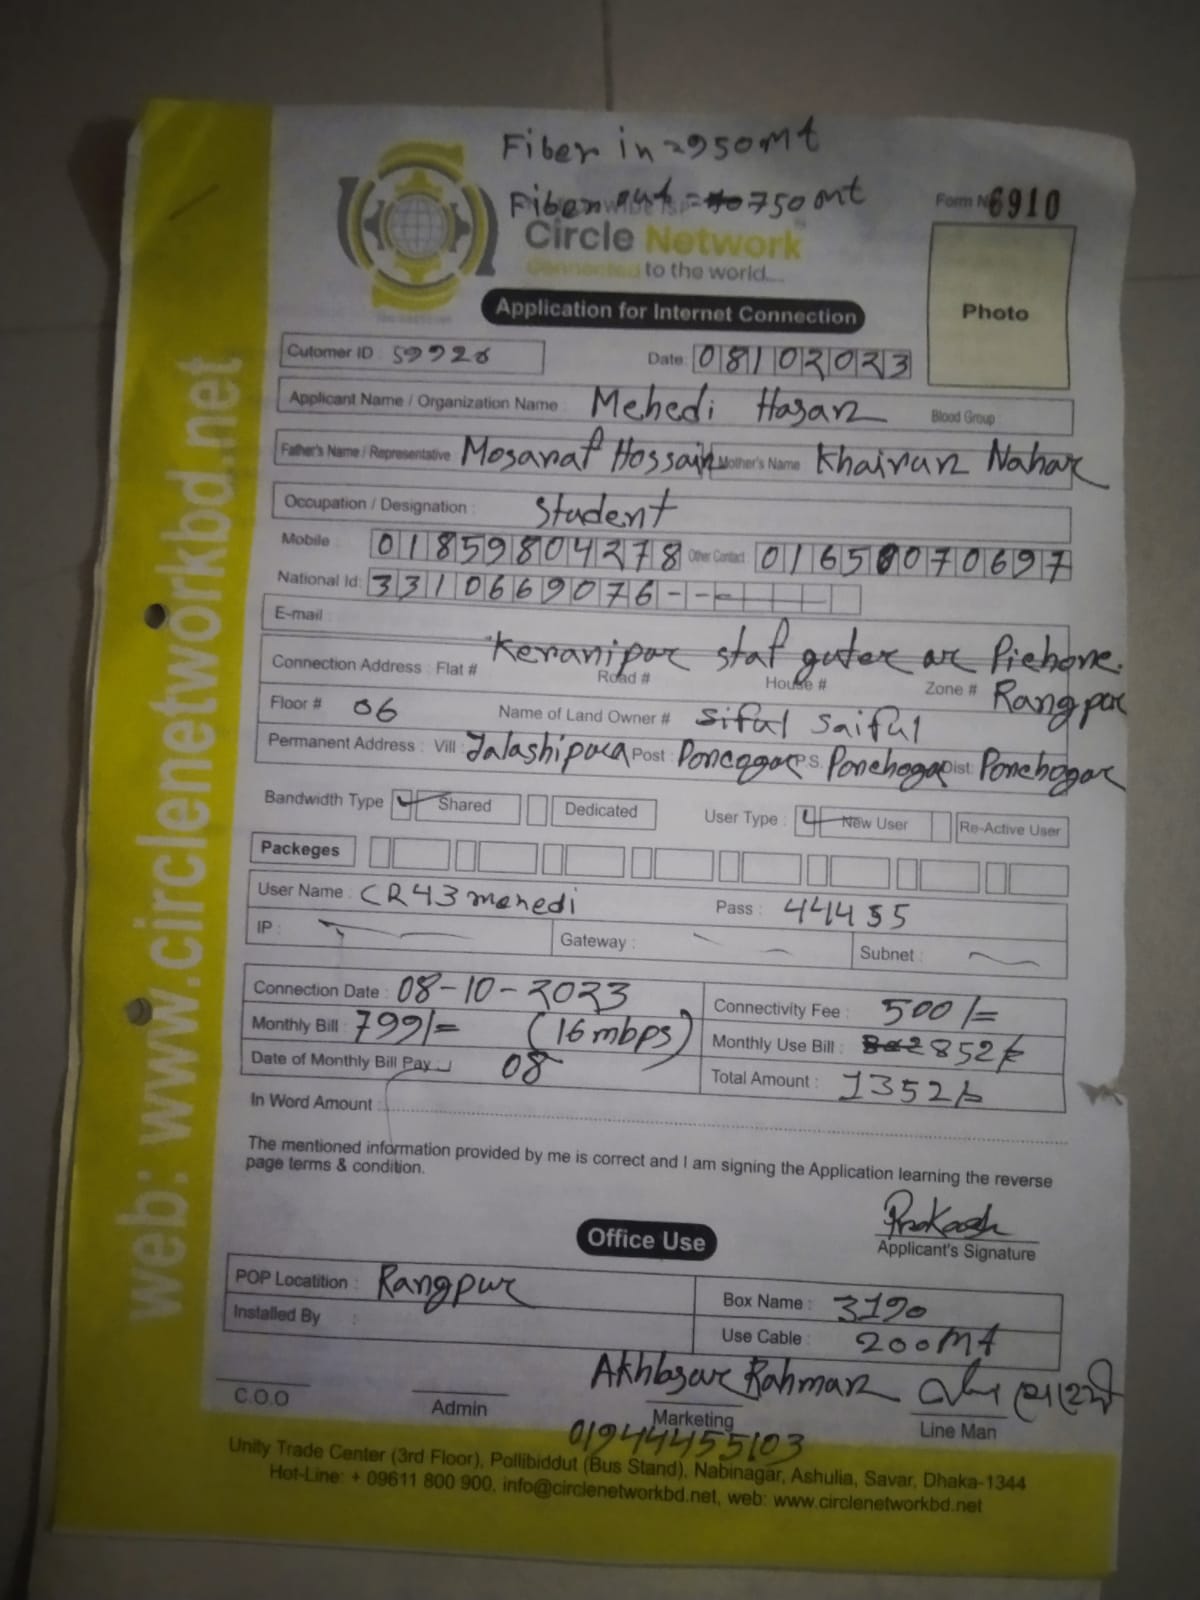 Fiber in = 950 mt
Fiber out = 750 mt
Form No 6910
Circle Network
Connected to the world....
Photo
Application for Internet Connection
Cutomer ID
Date: 08/102023
Applicant Name / Organization Name: Mehedi Hasan Blood Group
Father's Name / Representative Mosaraf Hossain Mother's Name Khairun Nahar
Occupation / Designation: Student
Mobile: 01859804278 Other Contact 01650070697
National Id: 3310669076---
E-mail
Connection Address: Flat # Road # House # Zone #
Keranipar staf Rangpur
Floor # 06 Name of Land Owner # Siful Saiful
Permanent Address: Vill: Jalashipara Post: P.S. Dist:
Bandwidth Type Shared Dedicated User Type: New User Re-Active User
Packeges
User Name: CR43mehedi Pass: 44455
IP: Gateway: Subnet:
Connection Date: 08-10-2023 Connectivity Fee: 500/=
Monthly Bill: 799/= (16 mbps) Monthly Use Bill: 852/=
Date of Monthly Bill Pay: 08 Total Amount: 1352/=
In Word Amount:
The mentioned information provided by me is correct and I am signing the Application learning the reverse
page terms & condition.
Prokash
Applicant's Signature
Office Use
POP Locatition: Rangpur Box Name: 3190
Installed By : Use Cable: 200 Mt
Akhbasar Rahman
C.O.O Admin Marketing Line Man
01944455103
Unity Trade Center (3rd Floor), Pollibiddut (Bus Stand), Nabinagar, Ashulia, Savar, Dhaka-1344
Hot-Line: + 09611 800 900, info@circlenetworkbd.net, web: www.circlenetworkbd.net
web: www.circlenetworkbd.net